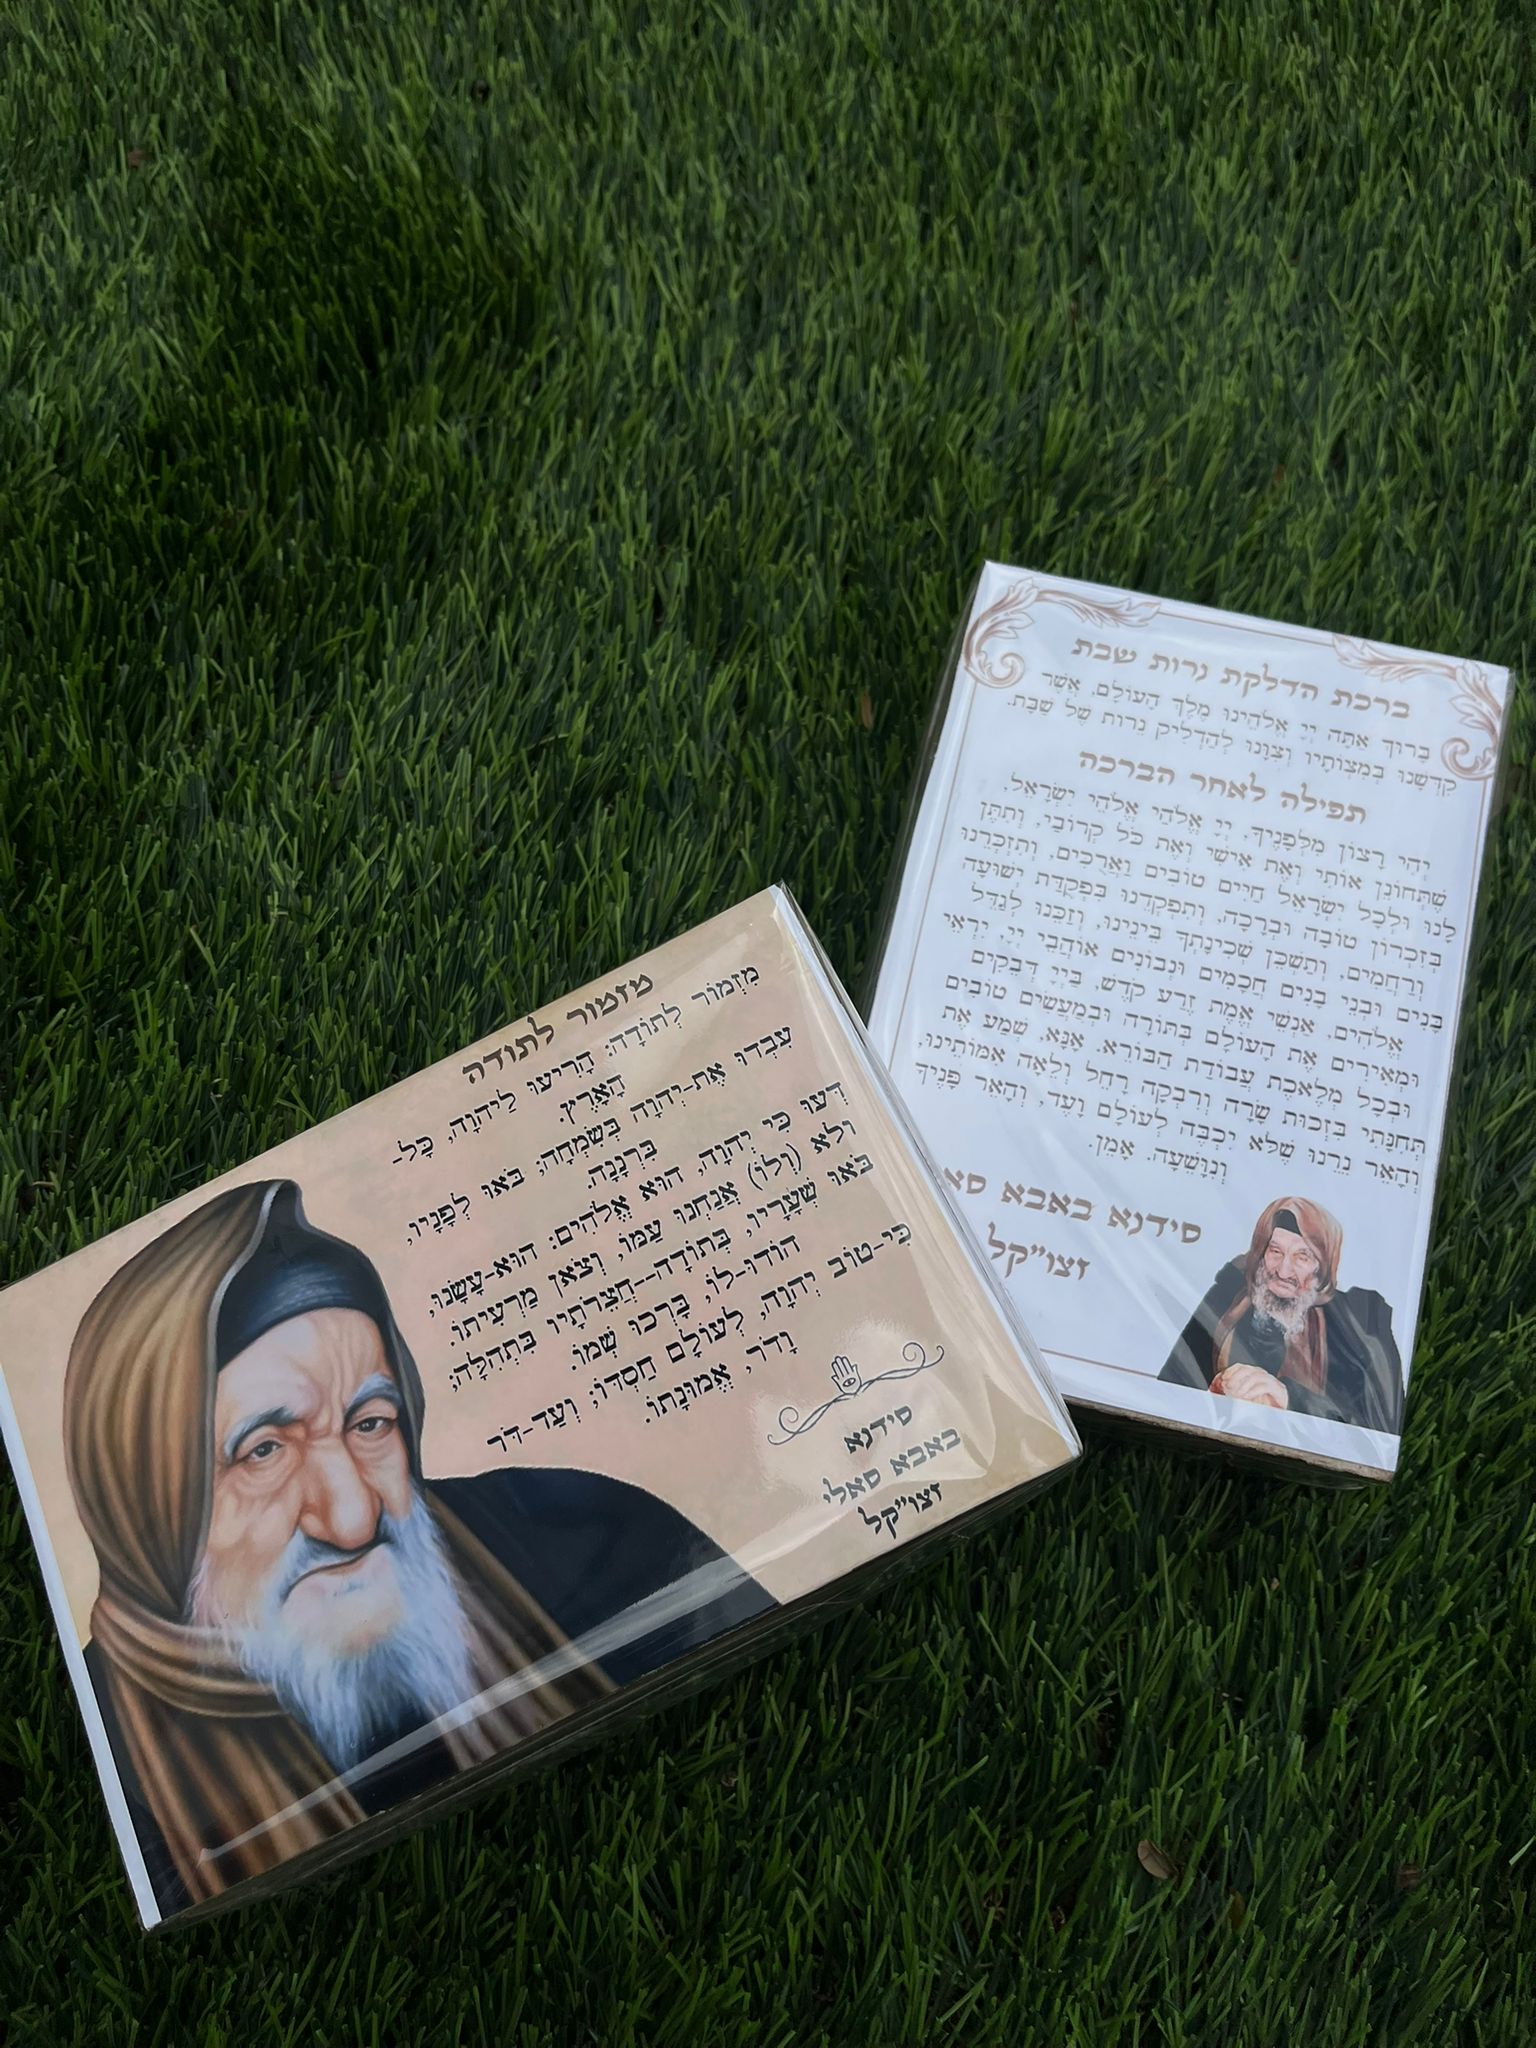 מזמור לתודה
מִזְמוֹר לְתוֹדָה: הָרִיעוּ לַיהוָה, כָּל-
הָאָרֶץ.
עִבְדוּ אֶת-יְהוָה בְּשִׂמְחָה; בֹּאוּ לְפָנָיו,
בִּרְנָנָה.
דְּעוּ כִּי יְהוָה, הוּא אֱלֹהִים: הוּא-עָשָׂנוּ,
ולא (וְלוֹ) אֲנַחְנוּ עַמּוֹ, וְצֹאן מַרְעִיתוֹ.
בֹּאוּ שְׁעָרָיו, בְּתוֹדָה--חֲצֵרֹתָיו בִּתְהִלָּה;
הוֹדוּ-לוֹ, בָּרְכוּ שְׁמוֹ.
כִּי-טוֹב יְהוָה, לְעוֹלָם חַסְדּוֹ; וְעַד-דֹּר
וָדֹר, אֱמוּנָתוֹ.
סידנא
באבא סאלי
זצו״קל
ברכת הדלקת נרות שבת
בָּרוּךְ אַתָּה יְיָ אֱלֹהֵינוּ מֶלֶךְ הָעוֹלָם, אֲשֶׁר
קִדְּשָׁנוּ בְּמִצְוֹתָיו וְצִוָּנוּ לְהַדְלִיק נֵרוֹת שֶׁל שַׁבָּת.
תפילה לאחר הברכה
יְהִי רָצוֹן מִלְּפָנֶיךָ, יְיָ אֱלֹהַי אֱלֹהֵי יִשְׂרָאֵל,
שֶׁתְּחוֹנֵן אוֹתִי וְאֶת אִישִׁי וְאֶת כֹּל קְרוֹבַי, וְתִתֵּן
לָנוּ וּלְכָל יִשְׂרָאֵל חַיִּים טוֹבִים וַאֲרֻכִּים, וְתִזְכְּרֵנוּ
בְּזִכְרוֹן טוֹבָה וּבְרָכָה, וְתִפְקְדֵנוּ בִּפְקֻדַּת יְשׁוּעָה
וְרַחֲמִים, וְתַשְׁכֵּן שְׁכִינָתְךָ בֵּינֵינוּ, וְזַכֵּנוּ לְגַדֵּל
בָּנִים וּבְנֵי בָנִים חֲכָמִים וּנְבוֹנִים אוֹהֲבֵי יְיָ, יִרְאֵי
אֱלֹהִים, אַנְשֵׁי אֱמֶת זֶרַע קֹדֶשׁ, בַּיְיָ דְּבֵקִים
וּמְאִירִים אֶת הָעוֹלָם בְּתוֹרָה וּבְמַעֲשִׂים טוֹבִים
וּבְכָל מְלֶאכֶת עֲבוֹדַת הַבּוֹרֵא. אָנָּא, שְׁמַע אֶת
תְּחִנָּתִי בִּזְכוּת שָׂרָה וְרִבְקָה רָחֵל וְלֵאָה אִמּוֹתֵינוּ,
וְהָאֵר נֵרֵנוּ שֶׁלֹּא יִכְבֶּה לְעוֹלָם וָעֶד, וְהָאֵר פָּנֶיךָ
וְנִוָּשֵׁעָה. אָמֵן.
סידנא באבא
זצו״קל